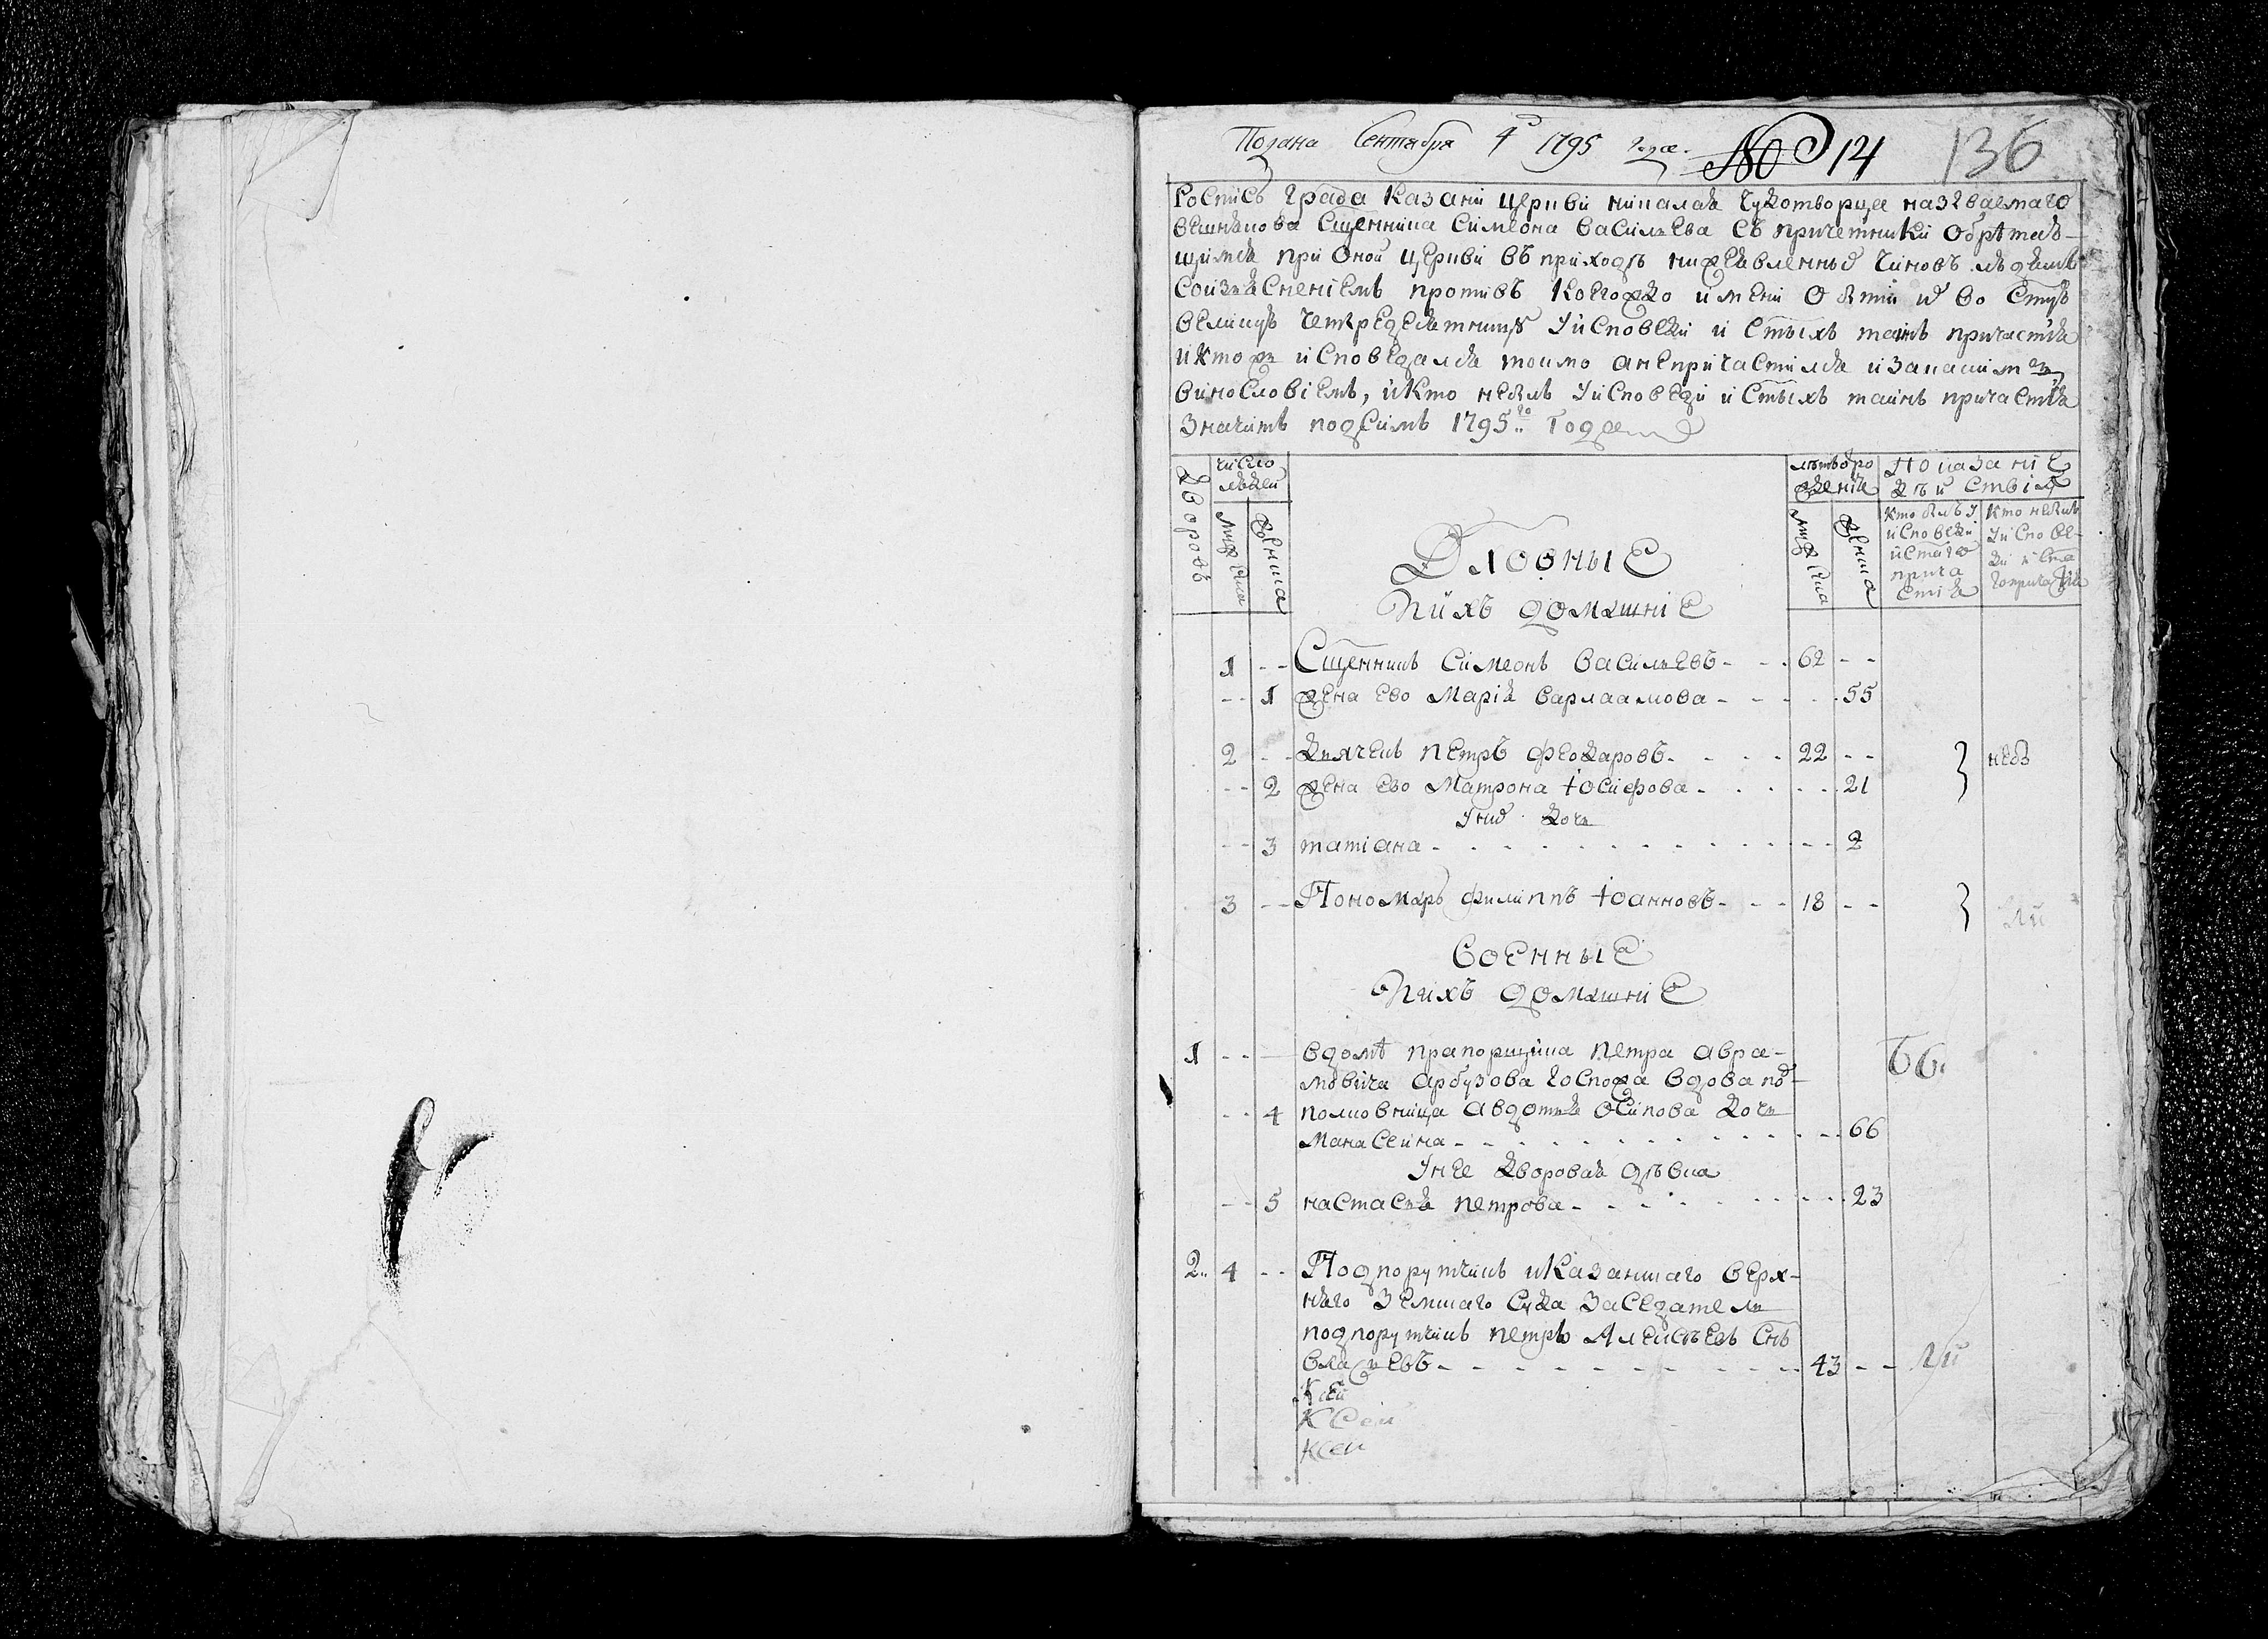 Подана Сентября 4 1795 года. № 14 136
Роспись града Казани церкви николая чудотворца называемаго
вешнякова Сщенника Симеона Васильева съ причетники обрѣтаю-
щимся при оной церкви въ приходѣ нижеявленныхъ чиновъ людемъ
со изъясненіемъ противъ коегождо имени о бытіи ихъ во Стую
великую четыредесятницу у исповеди и Стыхъ таинъ причастия
и кто ж исповедался токмо а не причастился и за каким
винословіемъ, и кто не былъ у исповеди и Стыхъ таинъ причастия
Значитъ под Симъ 1795го года
Дворовъ
число
людей
мужеска
женска
лѣтъ от ро
жденія
мужеска
женска
Показаніе
дѣйствія
кто былъ у
исповеди
и Стаго
прича
стія
кто не былъ
у испове-
ди и Ста
го причастія
Духовные
и ихъ домашніе
1 - - Сщенникъ Симеонъ Васильевъ - - 62 - -
- - 1 жена ево Марія Варлаамова - - - - 55
2 - - Дьячекъ Петръ Феодаровъ - - - 22 - - не б
- - 2 жена ево Матрона Іосифова - - - - 21
У них дочь
- - 3 татіана - - - - 2
3 - - Пономарь Филиппъ Іоанновъ - - - 18 - -
Военные
и ихъ домашніе
1 - - вдомѣ прапорщика Петра Авра-
мовича Арбузова госпожа вдова под-
- - 4 полковница Авдотья Осипова дочь
Манасеина - - - - 66
У нее дворовая дѣвка
- - 5 настасья Петрова - - - - 23
2 4 - - Подпорутчикъ и Казанскаго верх-
няго Земскаго Суда Заседатель
подпорутчикъ Петръ Алексѣевъ Снъ
- - - - 43 - -
Ксей
Ксеи
Ксеи